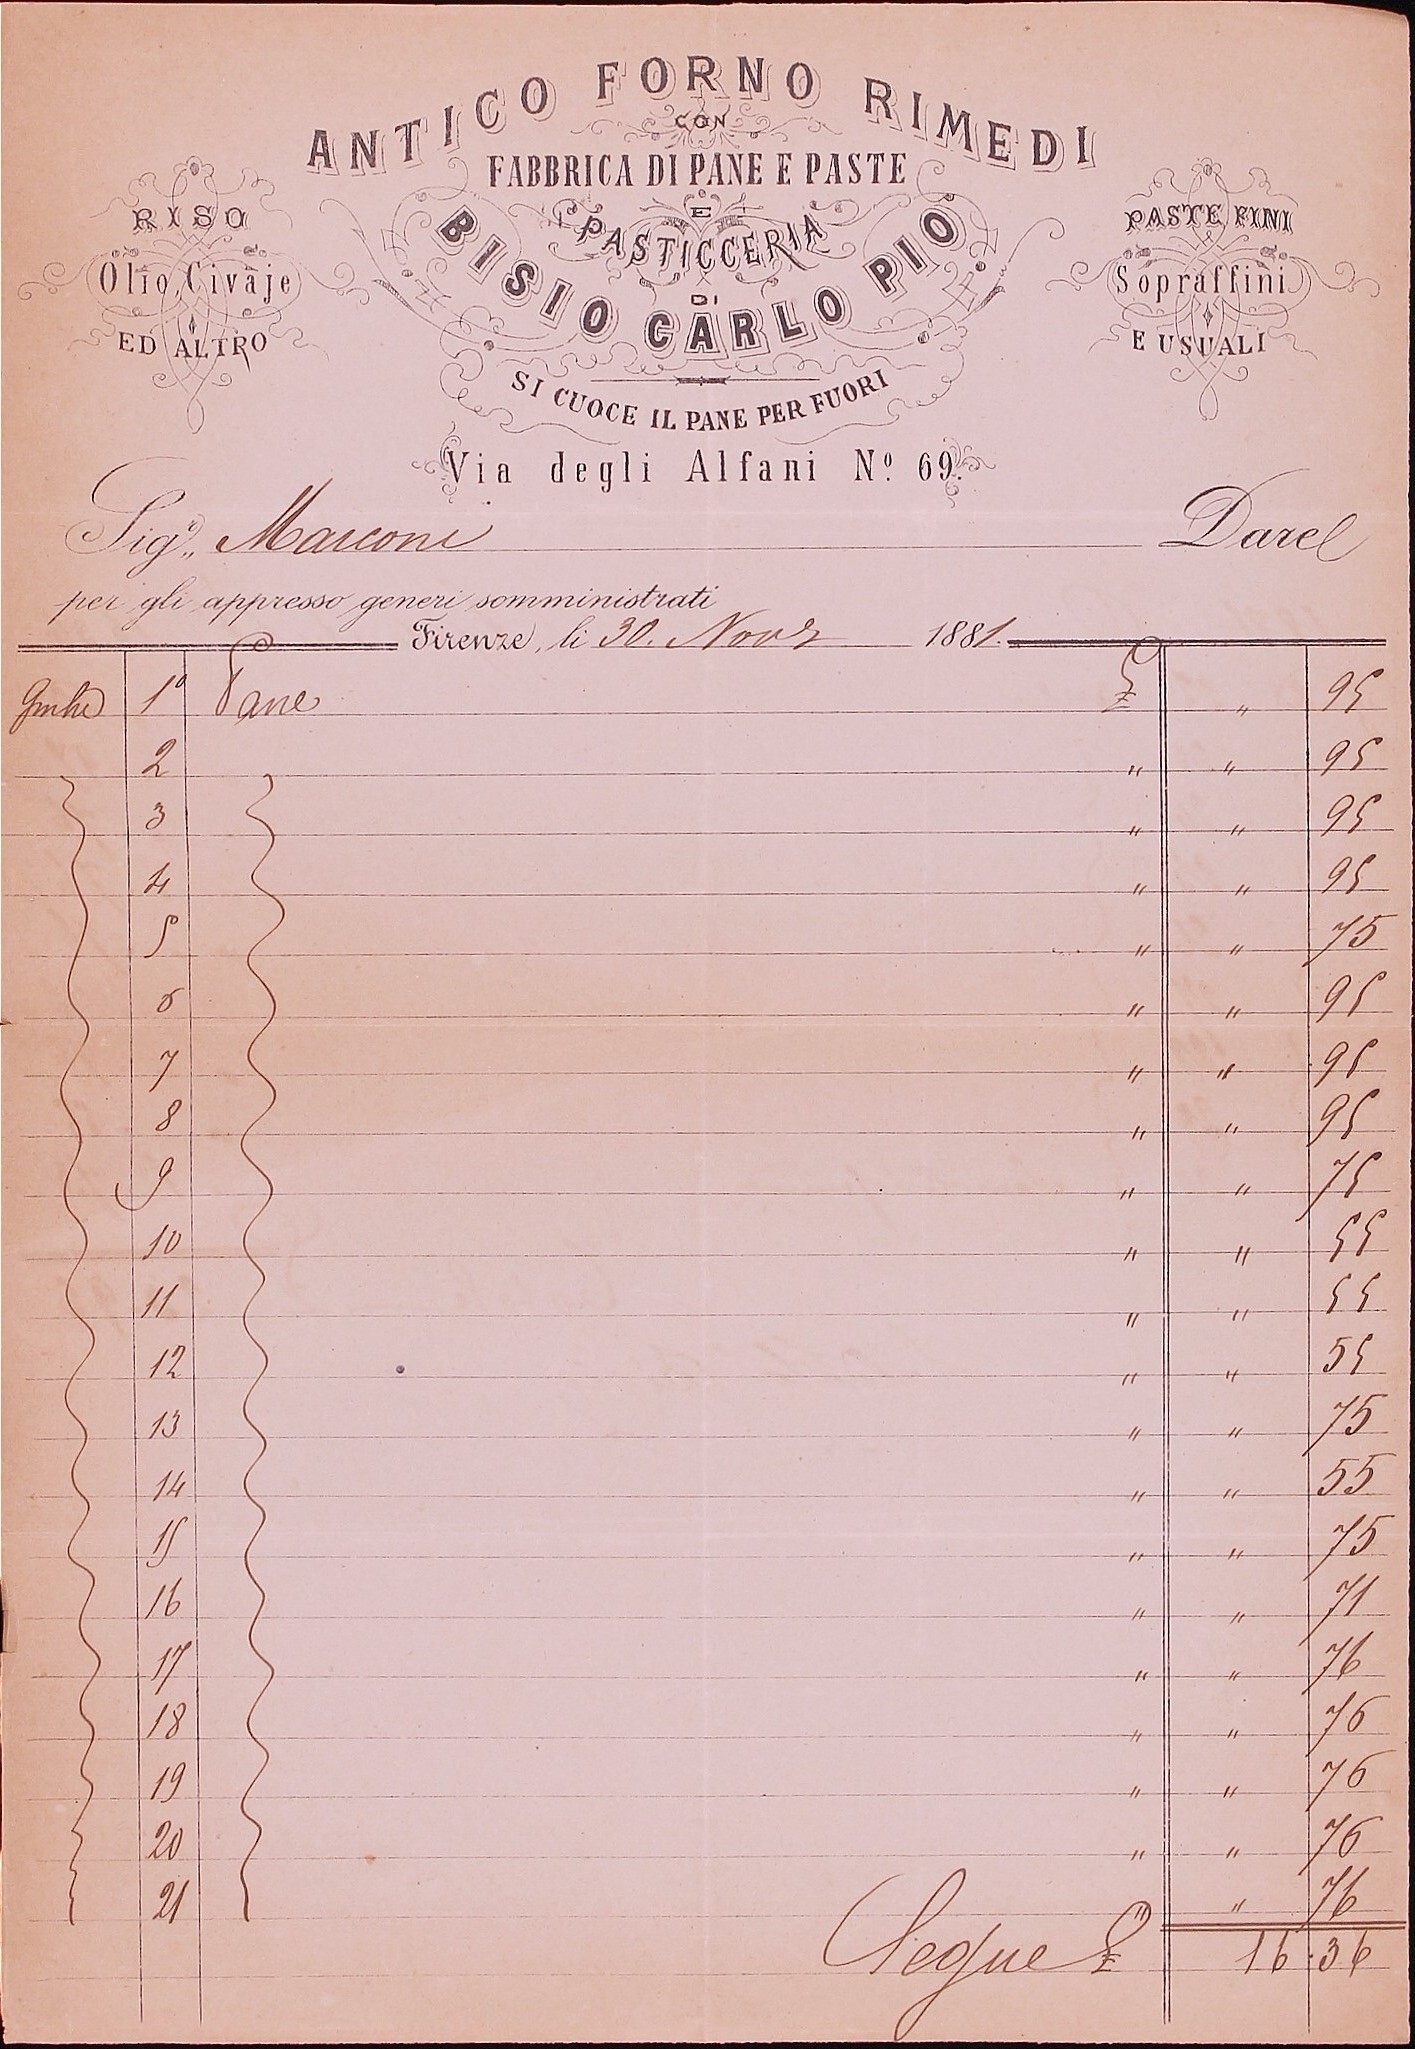 ANTICO FORNO RIMEDI
CON
FABBRICA DI PANE E PASTE
E
PASTICCERIA
DI
BISIO CARLO PIO
SI CUOCE IL PANE PER FUORI
Via degli Alfani Nº. 69.
RISO
Olio, Civaje
ED ALTRO
PASTE FINI
Sopraffini
E USUALI
Sigr., Marconi Dare
per gli appresso generi somministrati
Firenze, li 30. Nov 1881.
1º Pane £ " 95
2 " " 95
3 " " 95
4 " " 95
5 " " 75
6 " " 95
7 " " 95
8 " " 95
9 " " 75
10 " " 55
11 " " 55
12 " " 55
13 " " 75
14 " " 55
15 " " 75
16 " " 71
17 " " 76
18 " " 76
19 " " 76
20 " " 76
21 " " 76
Segue £ 16.36